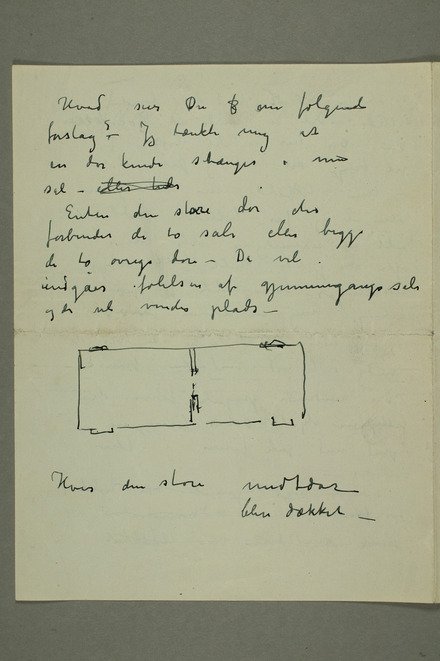 Hvad siger Du om følgende
forslag? – Jeg tænkte mig at
en dør kunde stænges i min
sal –
Enten den store dør der
forbinder de to sale eller begge
de to øvrige døre – Da vil
undgåes følelsen af gjennemgangssale
og der vil vindes plads –
Hvis den store midtdør
blev dækket –